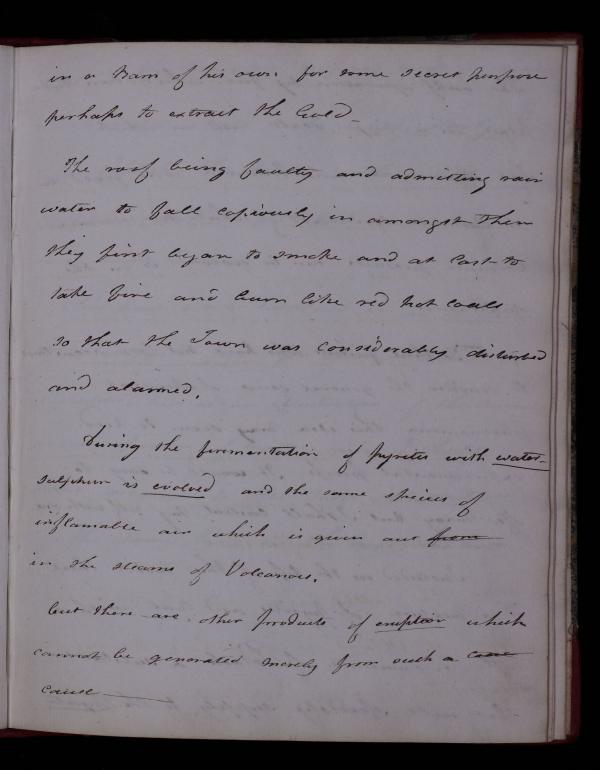 in a Barn of his own for some secret purpose
perhaps to extract the Gold_
The roof being faulty and admitting rain
water to fall copiously in amongst them
they first began to smoke and at last to
take fire and burn like red hot coals
so that the Town was considerably disturbed
and alarmed.
During the fermentation of pyrites with water_
sulphur is evolved and the same species of
inflamable air which is given out from
in the steams of Volcanoes.
but there are other products of eruption which
cannot be generated merely from such a case
cause